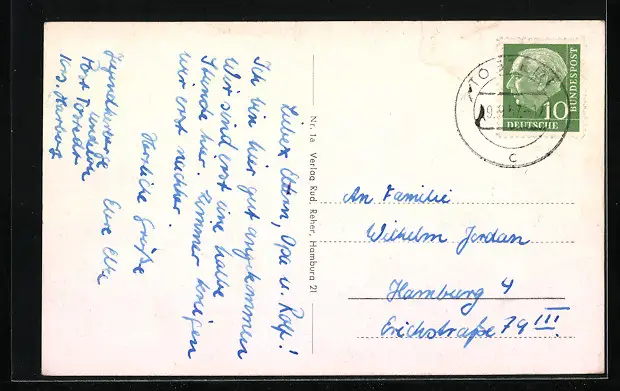 Liebe Eltern, Opa u. Rolf!
Ich bin hier gut angekommen
Wir sind erst eine halbe
Stunde hier. Zimmer kriegen
wir erst nachher.
Herzliche Grüße
Eure Elke
Jugendherberge
Post Tostedt
Krs. Harburg
Nr. 1a Verlag Rud. Reher, Hamburg 21
DEUTSCHE
BUNDESPOST
10
c
An Familie
Wilhelm Jordan
Hamburg 4
Erichstraße 79 III